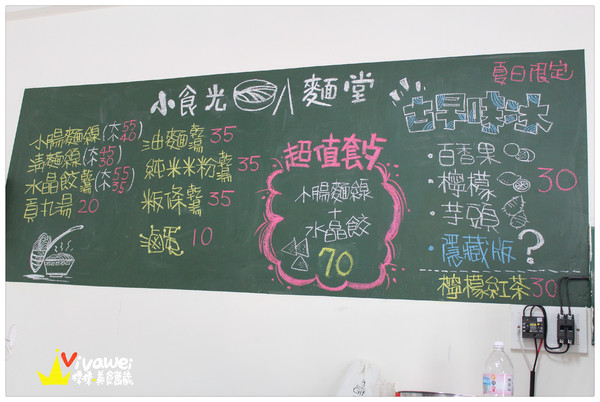 小食光 麵堂
小腸麵線(大55小40)
清麵線(大45小30)
水晶餃羹(大55小35)
貢丸湯 20
油麵羹 35
純米米粉羹 35
粄條羹 35
滷蛋 10
超值套餐
小腸麵線
+
水晶餃
70
夏日限定
古早味冰
·百香果
·檸檬 30
·芋頭
·隱藏版?
檸檬紅茶30
Vivawei
美食饗旅